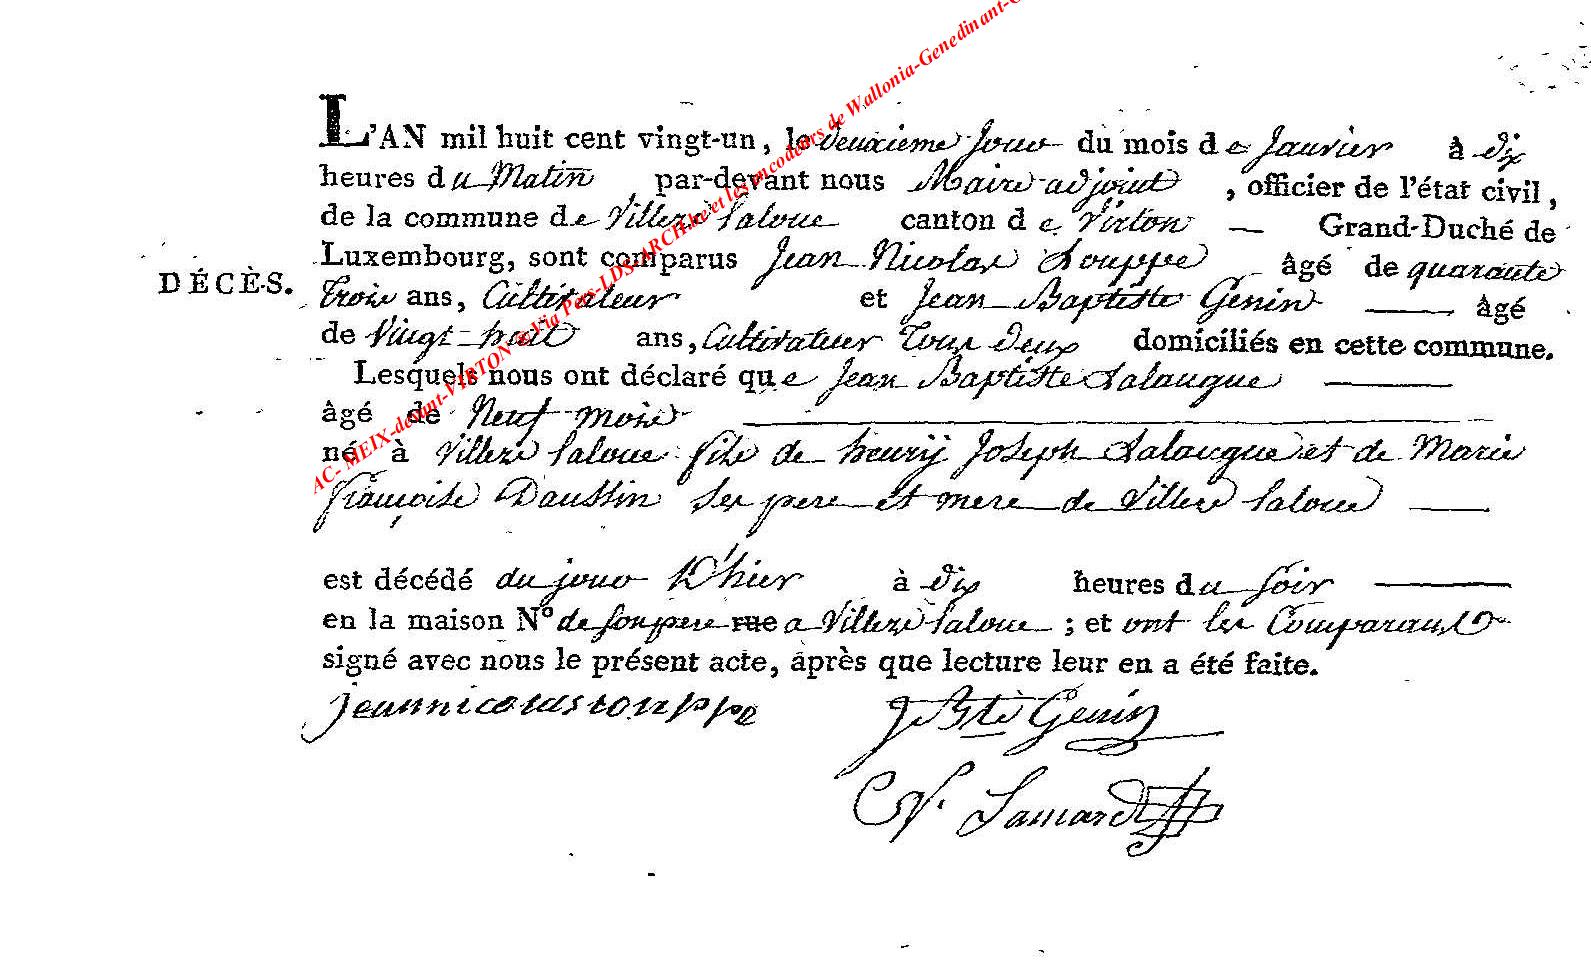 AC- MEIX-devant-VIRTON & Via Pers-LDS-ARCH.be et les encodeurs de Wallonia-Genedinant-
L'AN mil huit cent vingt-un, le deuxieme jour du mois de Janvier à dix
heures du Matin par-devant nous Maire adjoint, officier de l'état civil,
de la commune de Villers Laloue canton de Virton — Grand-Duché de
Luxembourg, sont comparus Jean Nicolas Louppe âgé de quarante
DÉCÈS.
Trois ans, Cultivateur et Jean Baptiste Genin — âgé
de Vingt-huit ans, Cultivateur Tous Deux domiciliés en cette commune.
Lesquels nous ont déclaré que Jean Baptiste Lalangue —
âgé de Neuf mois —
né à Villers Laloue fils de henry Joseph Lalangue et de Marie
françoise Daussin Ses pere et mere de Villers Laloue —
est décédé du jour D'hier à dix heures du Soir —
en la maison N° de son pere rue a Villers Laloue ; et ont les Comparants
signé avec nous le présent acte, après que lecture leur en a été faite.
jean nicolas louppe J Bte Genin